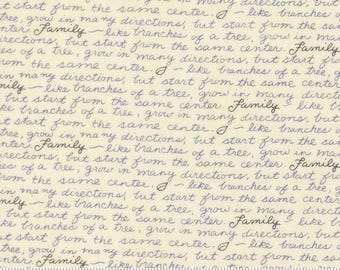 start from the same center. – like branches
grow in many directions, but start from the same
center. Family – like branches of a tree, grow in many di
rections, but start from the same center. Family
es of a tree, grow in many directions, but start
from the same center. – like branches of a tree,
in many directions, but start from the same center.
mily – like branches of a tree, grow in many directions
s, but start from the same center. Family – like
a tree, grow in many directions, but start from
nter. Family – like branches of a tree, grow in m
rections, but start from the same center. Family
es of a tree, grow in many directions, but start
from the same center. – like branches of a tree,
in many directions, but start from the same center.
mily – like branches of a tree, grow in many directi
s, but start from the same center. Family – like
of a tree, grow in many directions, but start from
nter. Family – like branches of a tree, grow in m